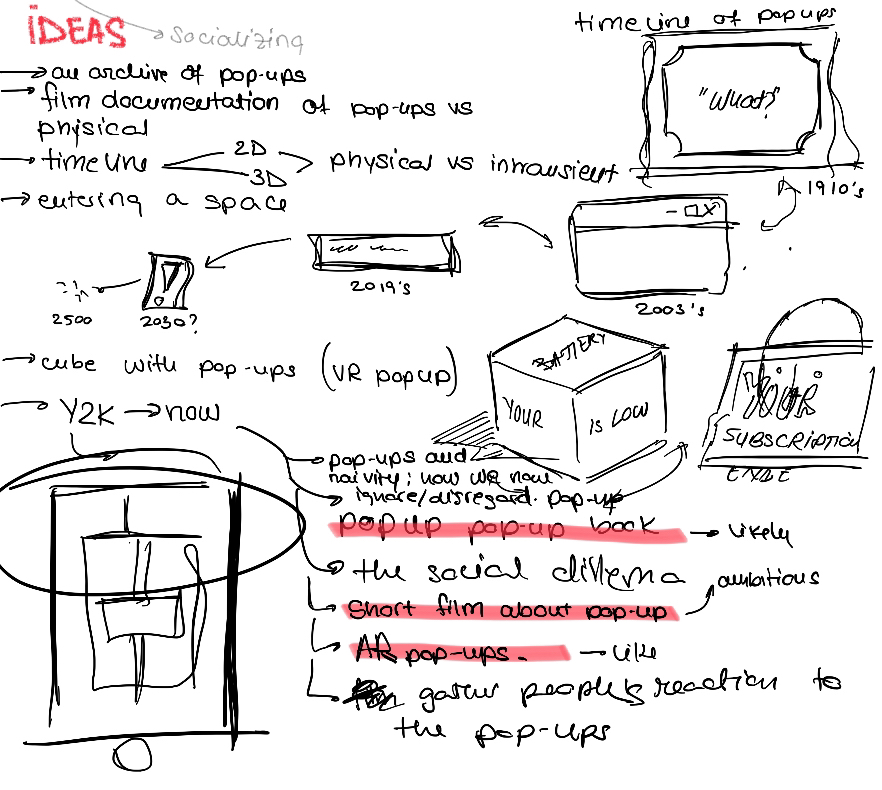 IDEAS → Socializing
timeline of pop ups
→ an archive of pop-ups
→ film documentation of pop-ups vs
physical
"What?"
→ timeline 2D 3D physical vs intransient
1910's
→ entering a space
- □ X
2019's
2003's
2500
2030?
!
→ cube with pop-ups (VR popup)
BATTERY
YOUR IS LOW
YOUR
SUBSCRIPTION
→ Y2K → now
→ pop-ups and
naivity; now we now
ignore/disregard. pop-up
pop up pop-up book → likely
the social dillema
short film about pop-up ambitious
AR pop-ups. → like
people's reaction to
the pop-ups